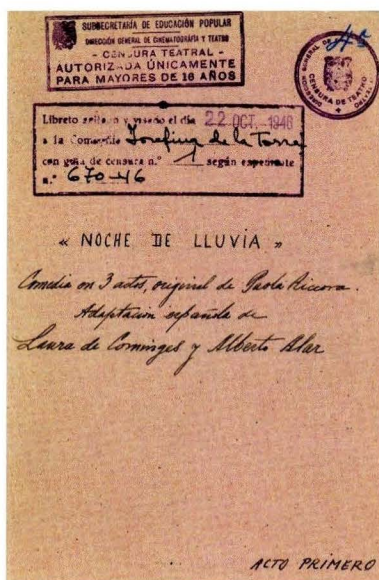 SUBSECRETARÍA DE EDUCACIÓN POPULAR
DIRECCIÓN GENERAL DE CINEMATOGRAFÍA Y TEATRO
- CENSURA TEATRAL -
AUTORIZADA ÚNICAMENTE
PARA MAYORES DE 16 AÑOS
CENSURA DE TEATRO
Libreto sellado y visado el día 22 OCT. 1946
a la Compañía Josefina de la Torre
con guía de censura n.º 1 según expediente
n.º 670-46
« NOCHE DE LLUVIA »
Comedia en 3 actos, original de Paola Riccora.
Adaptacion española de
Laura de Cominges y Alberto Alar
ACTO PRIMERO